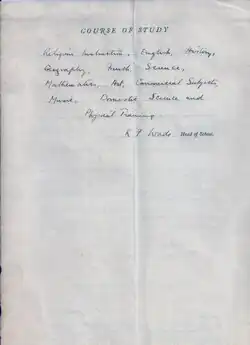 COURSE OF STUDY
Religious Instruction, English, History,
Geography, French, Science,
Mathematics, Art, Commercial Subjects,
Music, Domestic Science and
Physical Training.
K P Wade Head of School.